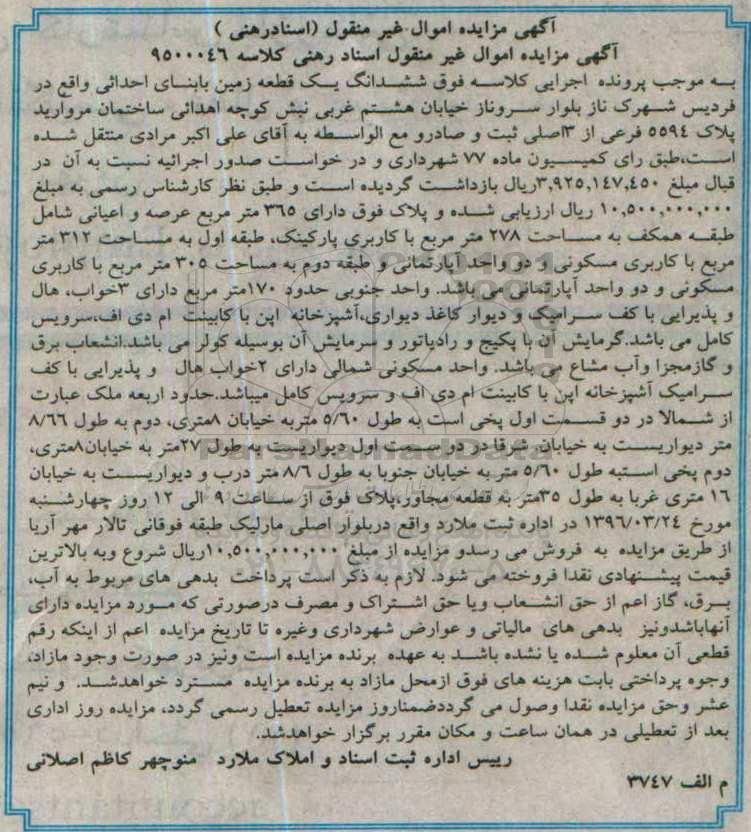 آگهی مزایده اموال غیر منقول (اسنادرهنی )
آگهی مزایده اموال غیر منقول اسناد رهنی کلاسه ۹۵۰۰۰۴۶
به موجب پرونده اجرایی کلاسه فوق ششدانگ یک قطعه زمین بابنای احداثی واقع در
فردیس شهرک ناز بلوار سروناز خیابان هشتم غربی نبش کوچه اهدائی ساختمان مروارید
پلاک ۵۵۹٤ فرعی از ۳اصلی ثبت و صادرو مع الواسطه به آقای علی اکبر مرادی منتقل شده
است،طبق رای کمیسیون ماده ۷۷ شهرداری و در خواست صدور اجرائیه نسبت به آن در
قبال مبلغ ۳,۹۲۵,۱٤۷,٤۵۰ریال بازداشت گردیده است و طبق نظر کارشناس رسمی به مبلغ
۱۰,۵۰۰,۰۰۰,۰۰۰ ریال ارزیابی شده و پلاک فوق دارای ۳٦۵ متر مربع عرصه و اعیانی شامل
طبقه همکف به مساحت ۲۷۸ متر مربع با کاربری پارکینک، طبقه اول به مساحت ۳۱۲ متر
مربع با کاربری مسکونی و دو واحد آپارتمانی و طبقه دوم به مساحت ۳۰۵ متر مربع با کاربری
مسکونی و دو واحد آپارتمانی می باشد. واحد جنوبی حدود ۱۷۰متر مربع دارای ۳خواب، هال
و پذیرایی با کف سرامیک و دیوار کاغذ دیواری،آشپزخانه اپن با کابینت ام دی اف،سرویس
کامل می باشد.گرمایش آن با پکیج و رادیاتور و سرمایش آن بوسیله کولر می باشد.انشعاب برق
و گازمجزا وآب مشاع می باشد. واحد مسکونی شمالی دارای ۲خواب هال و پذیرایی با کف
سرامیک آشپزخانه اپن با کابینت ام دی اف و سرویس کامل میباشد.حدود اربعه ملک عبارت
از شمالا در دو قسمت اول پخی است به طول ۵/٦۰ متربه خیابان ۸متری، دوم به طول ۸/٦٦
متر دیواریست به خیابان، شرقا در دو قسمت اول دیواریست به طول ۲۷متر به خیابان۸متری،
دوم پخی استبه طول ۵/٦۰ متر به خیابان جنوبا به طول ۸/٦ متر درب و دیواریست به خیابان
۱٦ متری غربا به طول ۳۵متر به قطعه مجاور،پلاک فوق از ساعت ۹ الی ۱۲ روز چهارشنبه
مورخ ۱۳۹٦/۰۳/۲٤ در اداره ثبت ملارد واقع دربلوار اصلی مارلیک طبقه فوقانی تالار مهر آریا
از طریق مزایده به فروش می رسدو مزایده از مبلغ ۱۰,۵۰۰,۰۰۰,۰۰۰ریال شروع وبه بالاترین
قیمت پیشنهادی نقدا فروخته می شود. لازم به ذکر است پرداخت بدهی های مربوط به آب،
برق، گاز اعم از حق انشعاب ویا حق اشتراک و مصرف درصورتی که مورد مزایده دارای
آنهاباشدونیز بدهی های مالیاتی و عوارض شهرداری وغیره تا تاریخ مزایده اعم از اینکه رقم
قطعی آن معلوم شده یا نشده باشد به عهده برنده مزایده است ونیز در صورت وجود مازاد،
وجوه پرداختی بابت هزینه های فوق ازمحل مازاد به برنده مزایده مسترد خواهدشد. و نیم
عشر وحق مزایده نقدا وصول می گرددضمناروز مزایده تعطیل رسمی گردد، مزایده روز اداری
بعد از تعطیلی در همان ساعت و مکان مقرر برگزار خواهدشد.
رییس اداره ثبت اسناد و املاک ملارد منوچهر کاظم اصلانی
م الف ۳۷٤۷
ParsNamadData